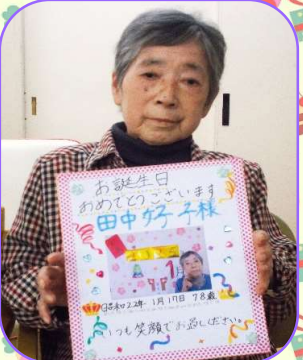 お誕生日
おめでとうございます
田中好子様
1月
昭和22年 1月17日 78歳
いつも笑顔でお過しください。